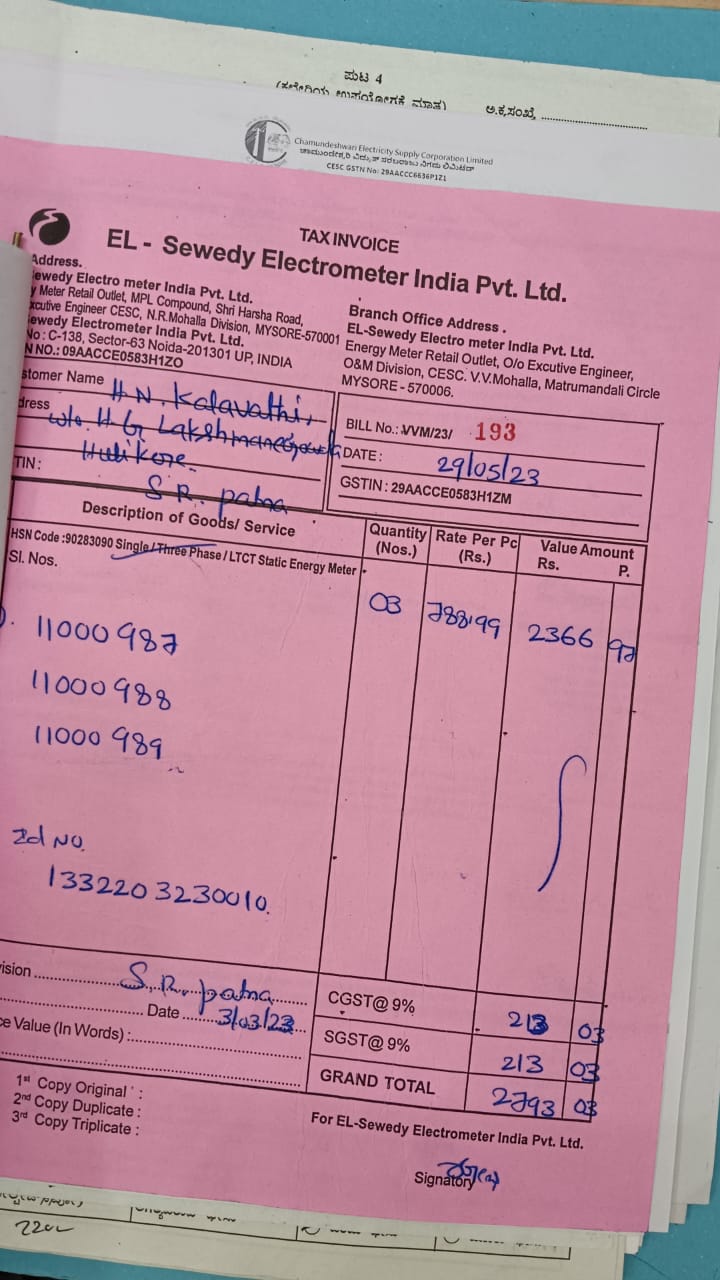 ಪುಟ 4
(ಕಛೇರಿಯ ಉಪಯೋಗಕ್ಕೆ ಮಾತ್ರ)
ಅ.ಕ್ರ.ಸಂಖ್ಯೆ
Chamundeshwari Electricity Supply Corporation Limited
ಚಾಮುಂಡೇಶ್ವರಿ ವಿದ್ಯುತ್ ಸರಬರಾಜು ನಿಗಮ ಲಿಮಿಟೆಡ್
CESC GSTN No: 29AACCC6636P1Z1
TAX INVOICE
EL - Sewedy Electrometer India Pvt. Ltd.
Address.
ewedy Electro meter India Pvt. Ltd.
y Meter Retail Outlet, MPL Compound, Shri Harsha Road,
xcutive Engineer CESC, N.R.Mohalla Division, MYSORE-570001
ewedy Electrometer India Pvt. Ltd.
No : C-138, Sector-63 Noida-201301 UP, INDIA
N NO.: 09AACCE0583H1ZO
Branch Office Address .
EL-Sewedy Electro meter India Pvt. Ltd.
Energy Meter Retail Outlet, O/o Excutive Engineer,
O&M Division, CESC. V.V.Mohalla, Matrumandali Circle
MYSORE - 570006.
stomer Name H N. Kalavathi,
dress w/o. H G Lakshmanegowda
Hulikere.
TIN : S R. patna
BILL No.: VVM/23/ 193
DATE : 29/05/23
GSTIN : 29AACCE0583H1ZM
Description of Goods/ Service
Quantity (Nos.)
Rate Per Pc (Rs.)
Value Amount
Rs. P.
HSN Code :90283090 Single / Three Phase / LTCT Static Energy Meter
Sl. Nos.
03 788.99 2366 97
11000987
11000988
11000989
Id No.
1332203230010.
ision S.R. patna
Date 3/03/23
ce Value (In Words) :
CGST@ 9% 213 03
SGST@ 9% 213 03
GRAND TOTAL 2793 03
1st Copy Original :
2nd Copy Duplicate :
3rd Copy Triplicate :
For EL-Sewedy Electrometer India Pvt. Ltd.
Signatory